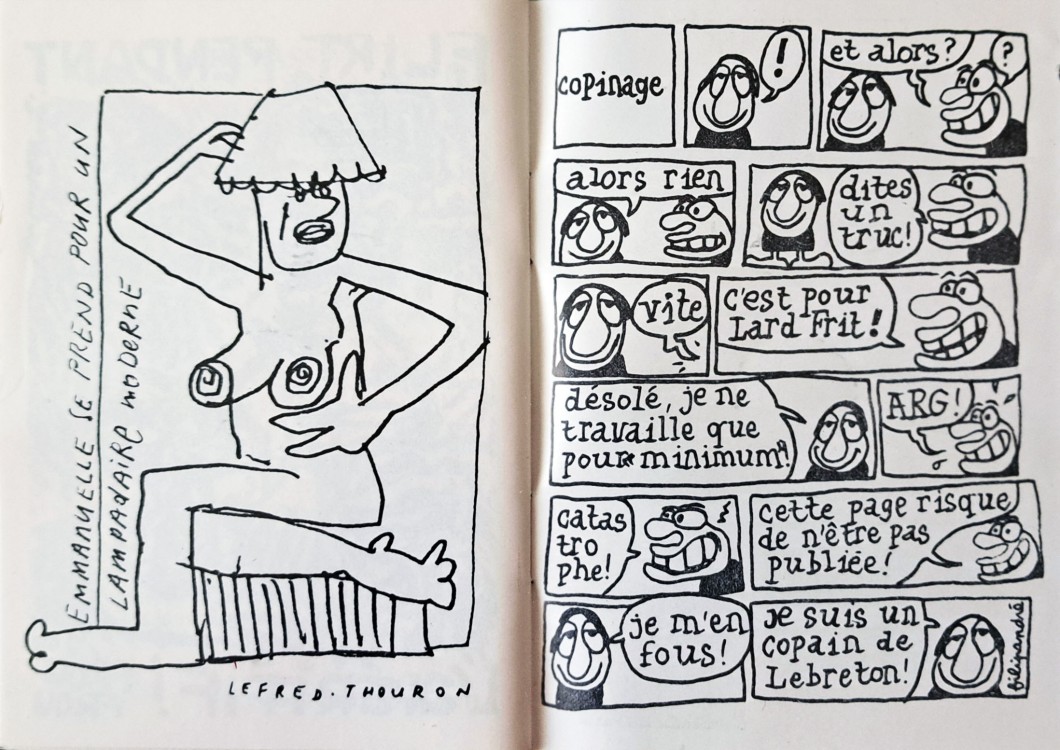 EMMANUELLE SE PREND POUR UN
LAMPADAIRE MODERNE
LEFRED.THOURON
copinage
!
et alors?
?
alors rien
dites
un
truc!
vite
c'est pour
Lard Frit!
désolé, je ne
travaille que
pour minimum!
ARG!
catas
tro
phe!
cette page risque
de n'être pas
publiée!
je m'en
fous!
je suis un
copain de
Lebreton!
filipandré